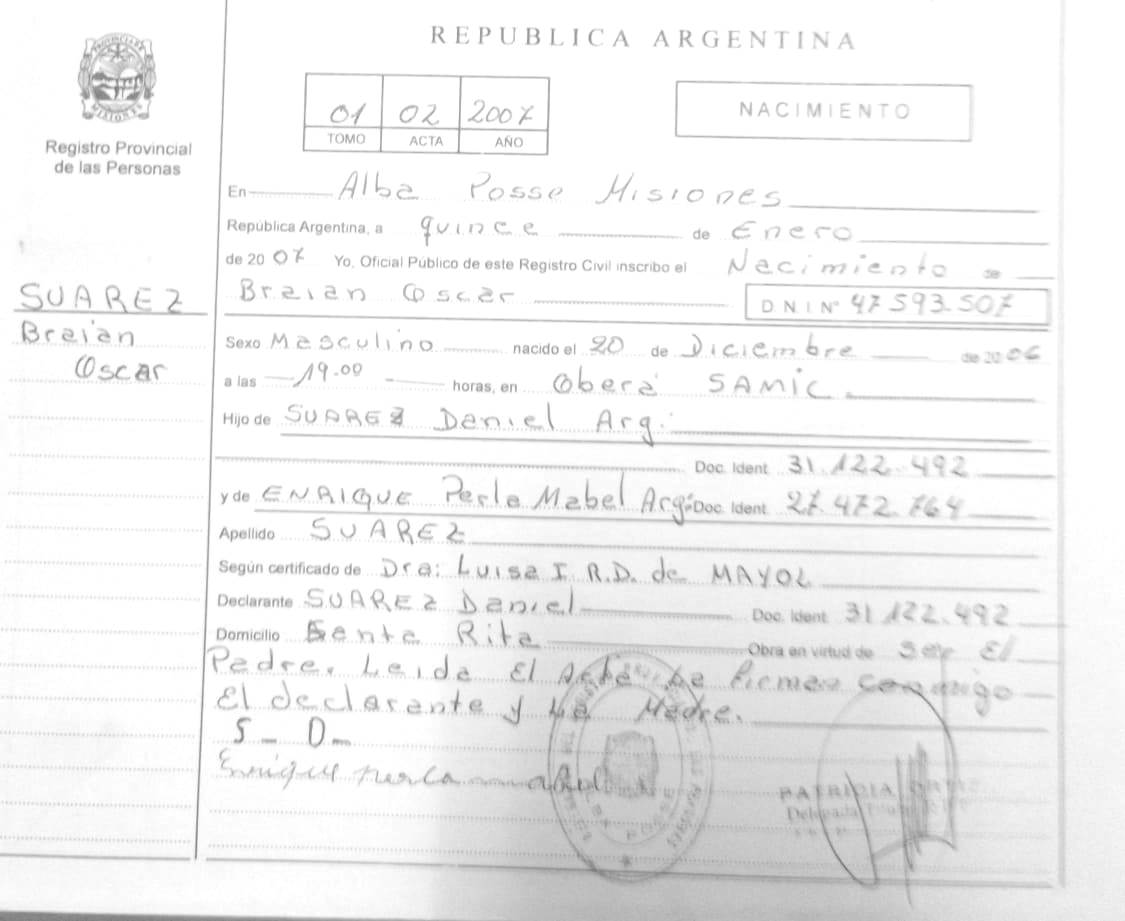 REPUBLICA ARGENTINA
PROVINCIA DE MISIONES
Registro Provincial
de las Personas
01 02 2007
TOMO ACTA AÑO
NACIMIENTO
En Alba Posse Misiones
República Argentina, a quince de Enero
de 2007 Yo, Oficial Público de este Registro Civil inscribo el Nacimiento de
Braian Oscar D N I Nº 47 593.507
SUAREZ
Braian
Oscar
Sexo Masculino nacido el 20 de Diciembre de 2006
a las 19.00 horas, en Obera SAMIC
Hijo de SUAREZ Daniel Arg.
Doc. Ident. 31.122.492
y de ENRIQUE Perla Mabel Arg. Doc. Ident. 27.472.764
Apellido SUAREZ
Según certificado de Dra: Luisa I. R.D. de MAYOL
Declarante SUAREZ Daniel Doc. Ident. 31 122.492
Domicilio Santa Rita Obra en virtud de Ser El
Padre. Leida El Acta la firman conmigo
El declarante y La Madre.
S_ D_
Enrique perla mabel
PATRICIA
Delegada